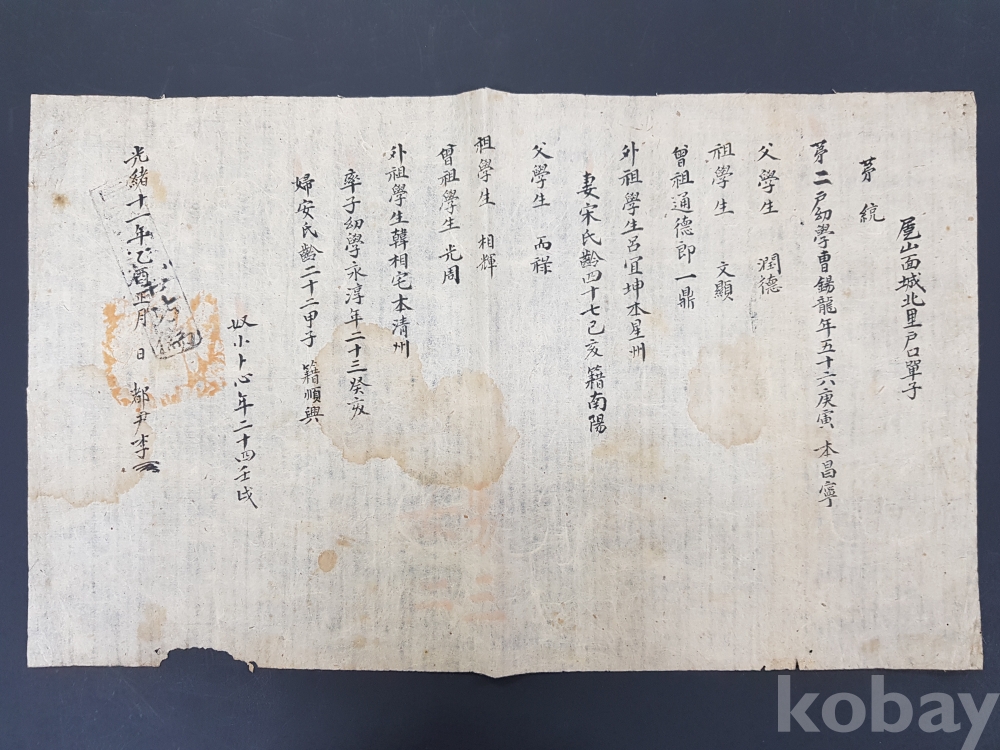 尾山面城北里戶口單子
苐 統
苐二戶幼學曺錫龍年五十六庚寅 本昌寧
父學生 潤德
祖學生 文顯
曾祖通德郎一鼎
外祖學生呂宜坤本星州
妻宋氏齡四十七己亥籍南陽
父學生 丙祿
祖學生 相輝
曾祖學生 光周
外祖學生韓相宅本清州
率子幼學永淳年二十三癸亥
婦安氏齡二十二甲子 籍順興
奴小卜心年二十四壬戌
光緒十一年乙酉正月 日 都尹李
kobay